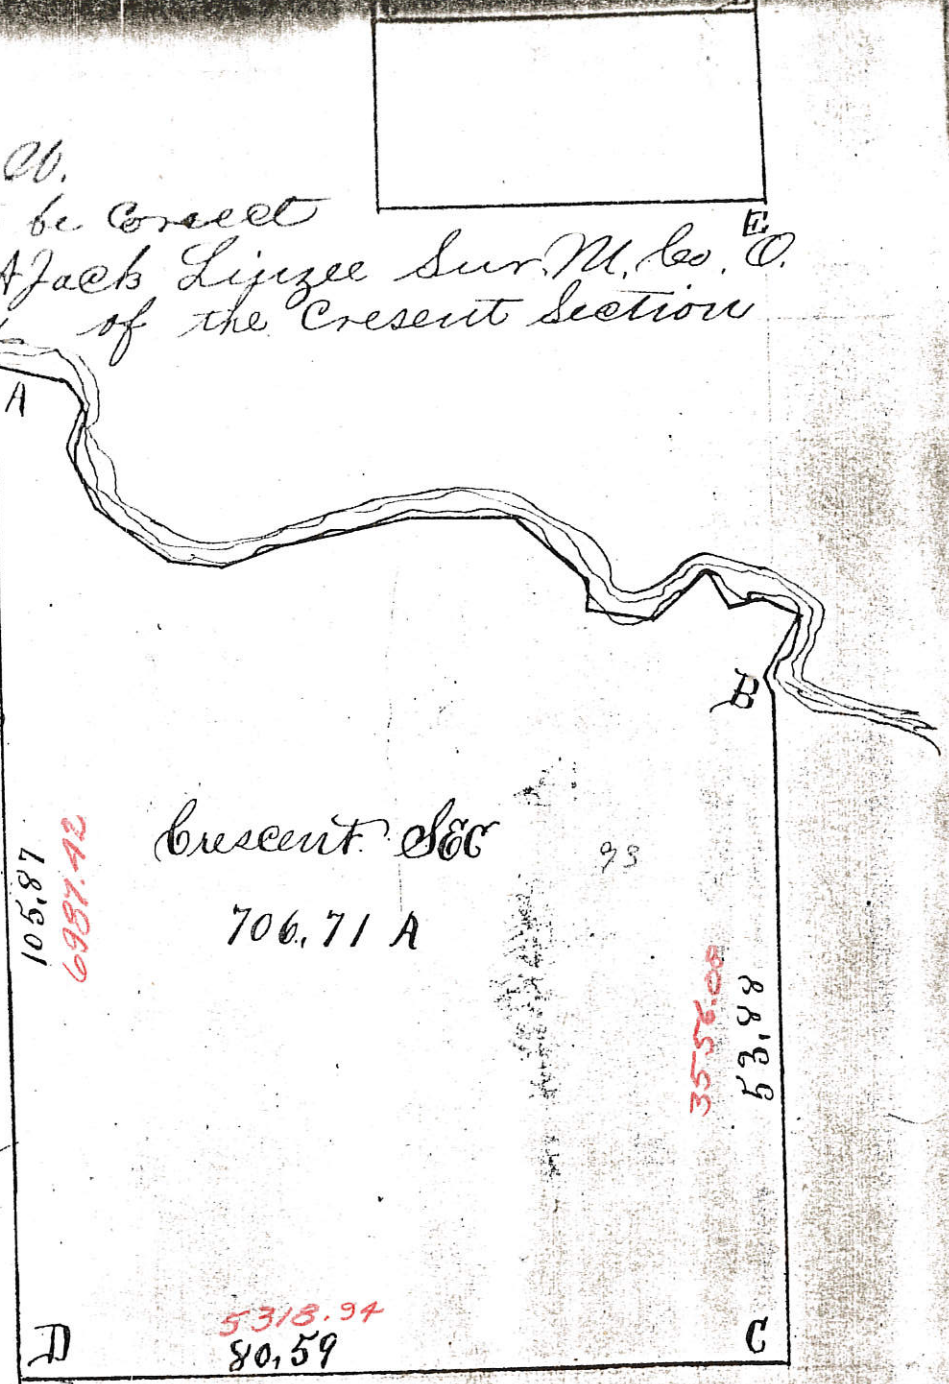 Co.
be Correct
A Jack Linzee Sur. M. Co. O.
of the Cresent Section
E
A
B
Crescent SEC
93
706.71 A
105.87
6987.42
3556.08
53.88
D
5318.94
80.59
C